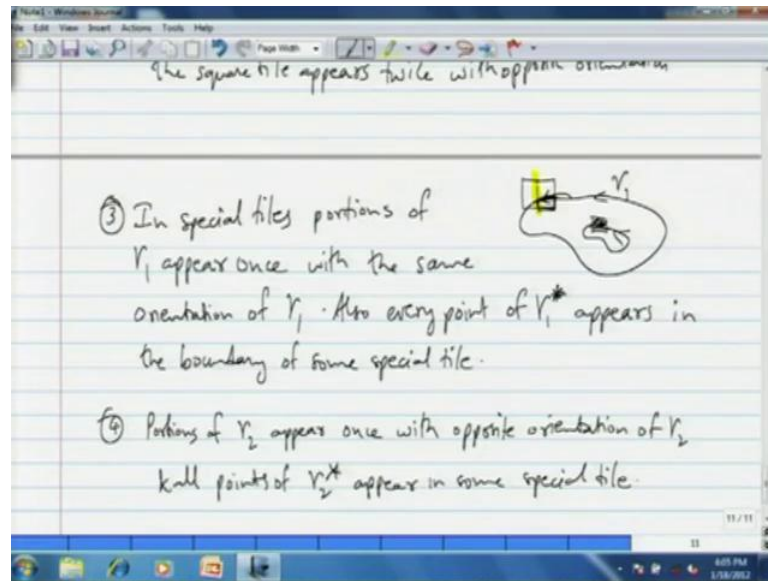 Note1 - Windows Journal
File Edit View Insert Actions Tools Help
Page Width
The square tile appears twice with opposite orientation
③ In special tiles portions of
γ₁ appear once with the same
orientation of γ₁. Also every point of γ₁* appears in
the boundary of some special tile.
γ₁
④ Portions of γ₂ appear once with opposite orientation of γ₂
& all points of γ₂* appear in some special tile.
11 / 11
11
6:05 PM
1/18/2012